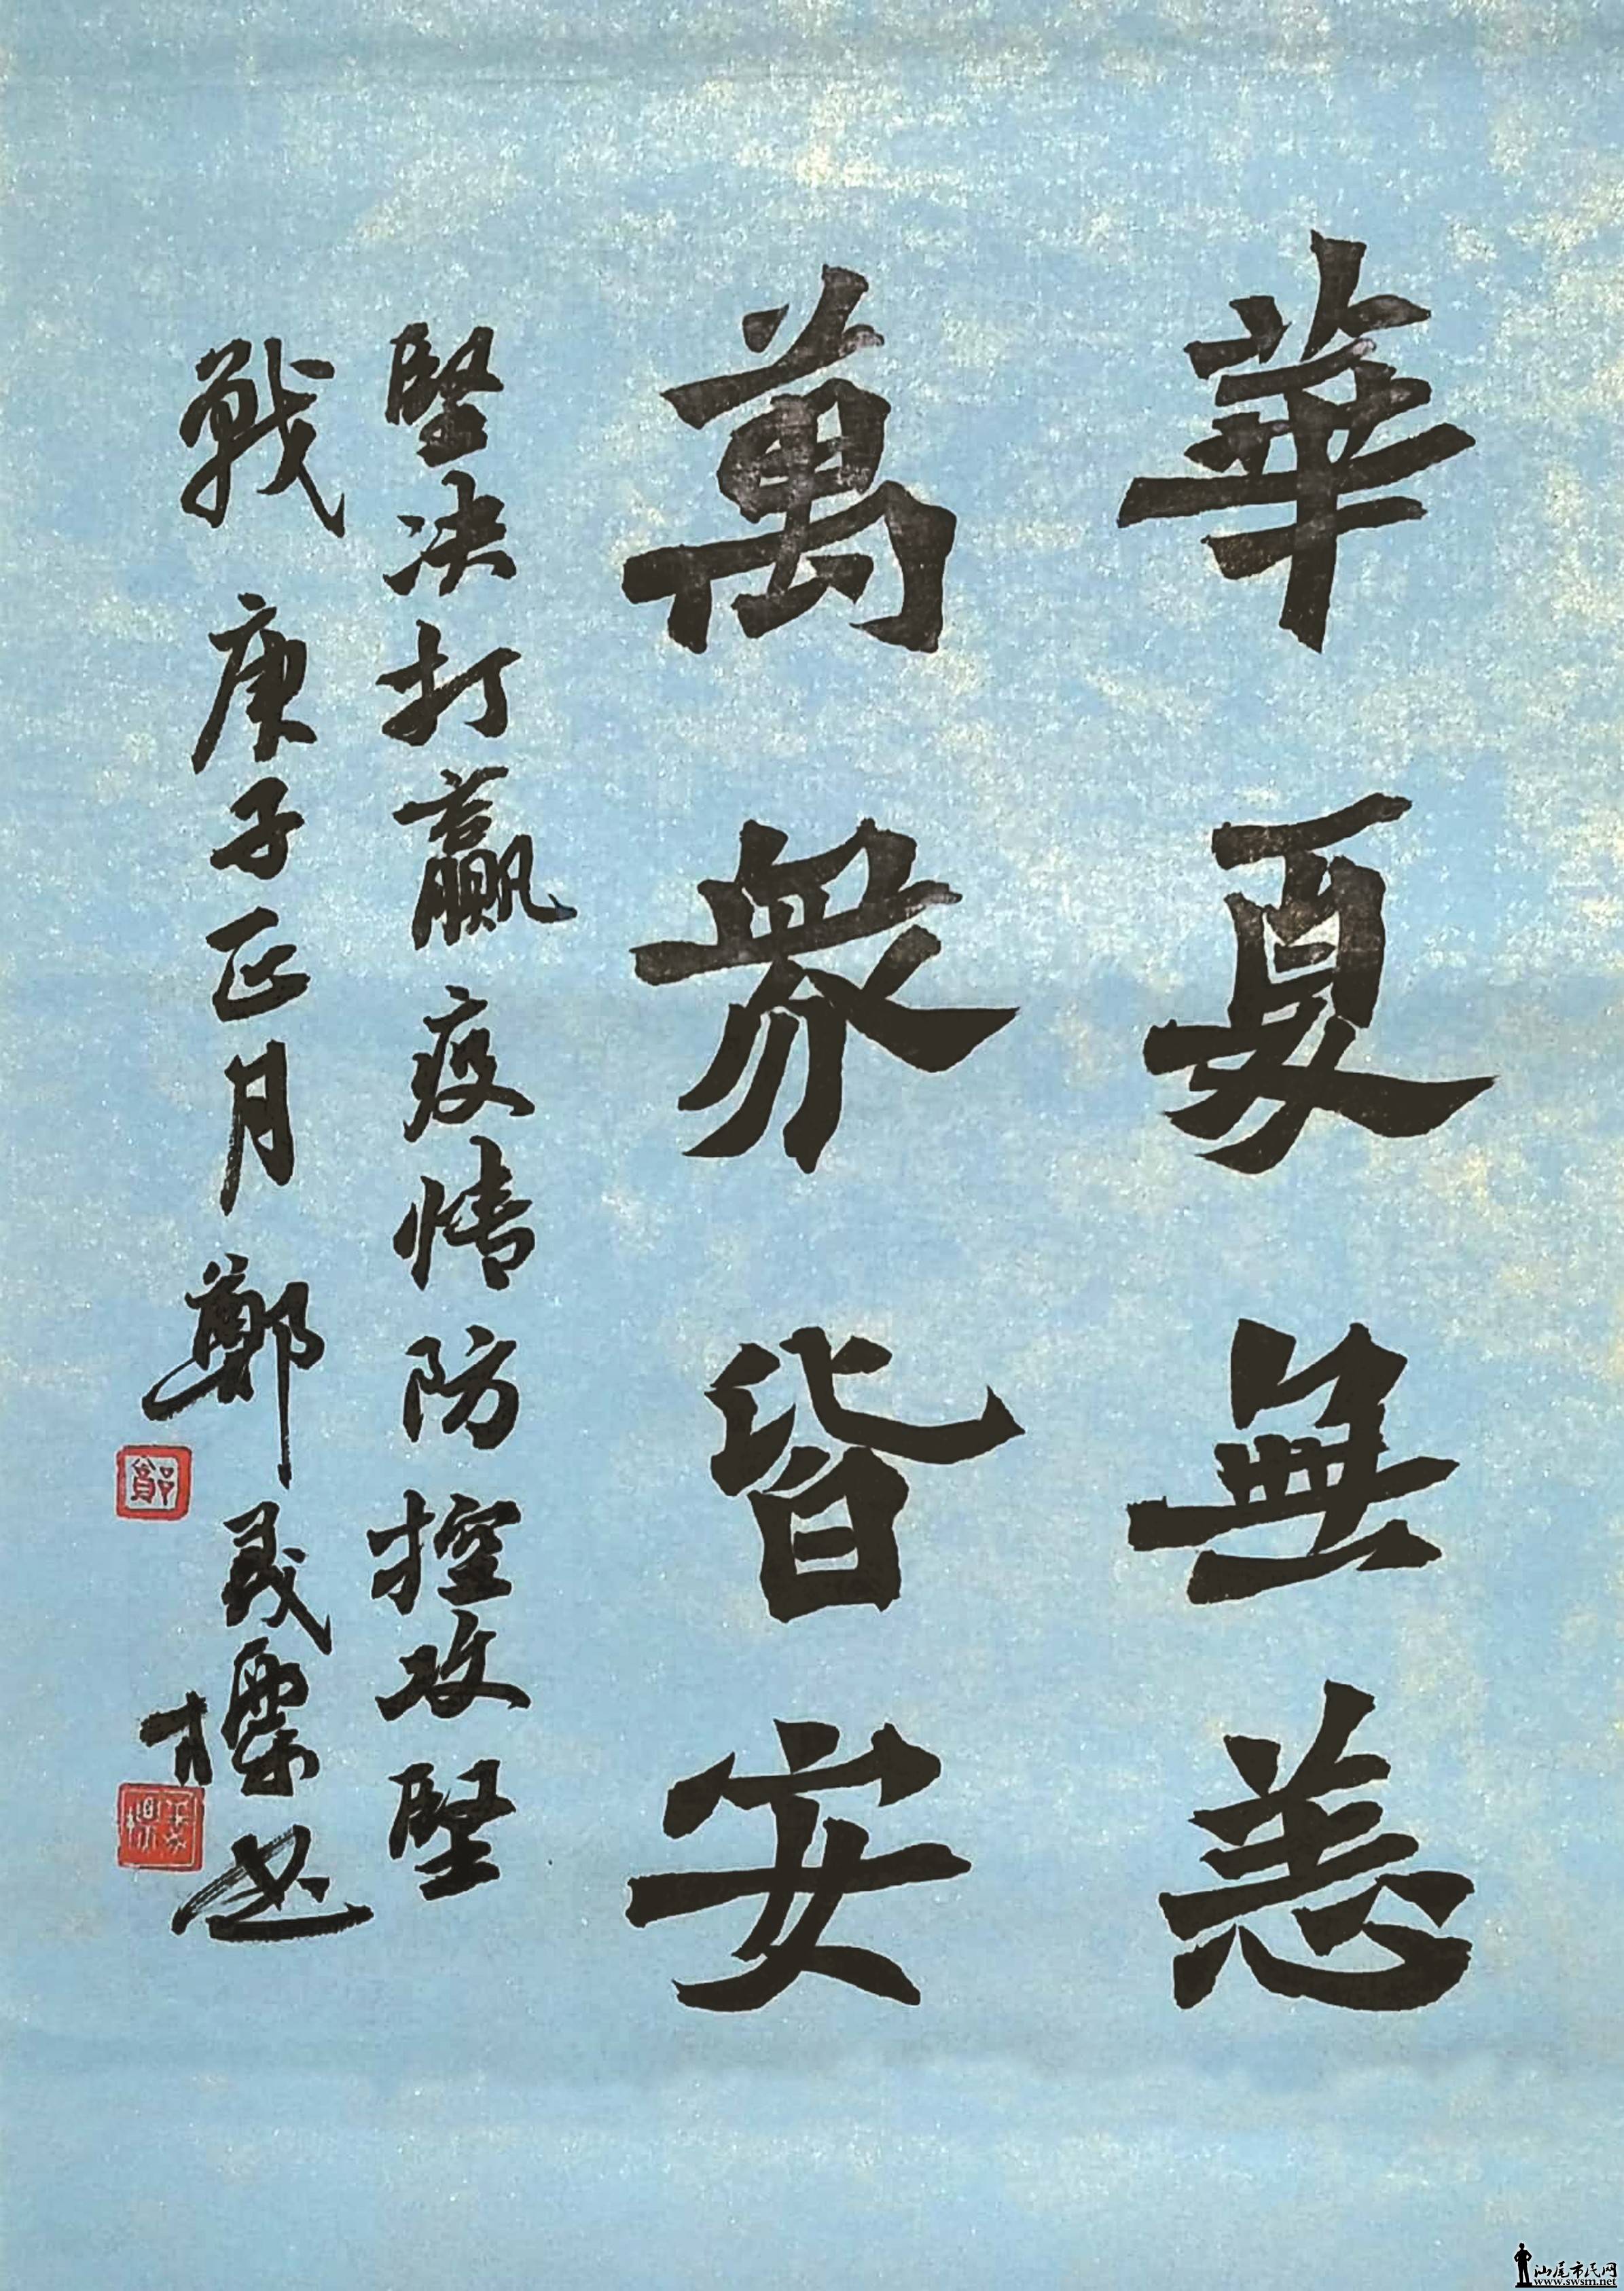 華夏無恙
萬衆皆安
堅决打赢疫情防控攻堅
戰 庚子正月 鄭
書
鄭
汕尾市民网
www.swsm.net